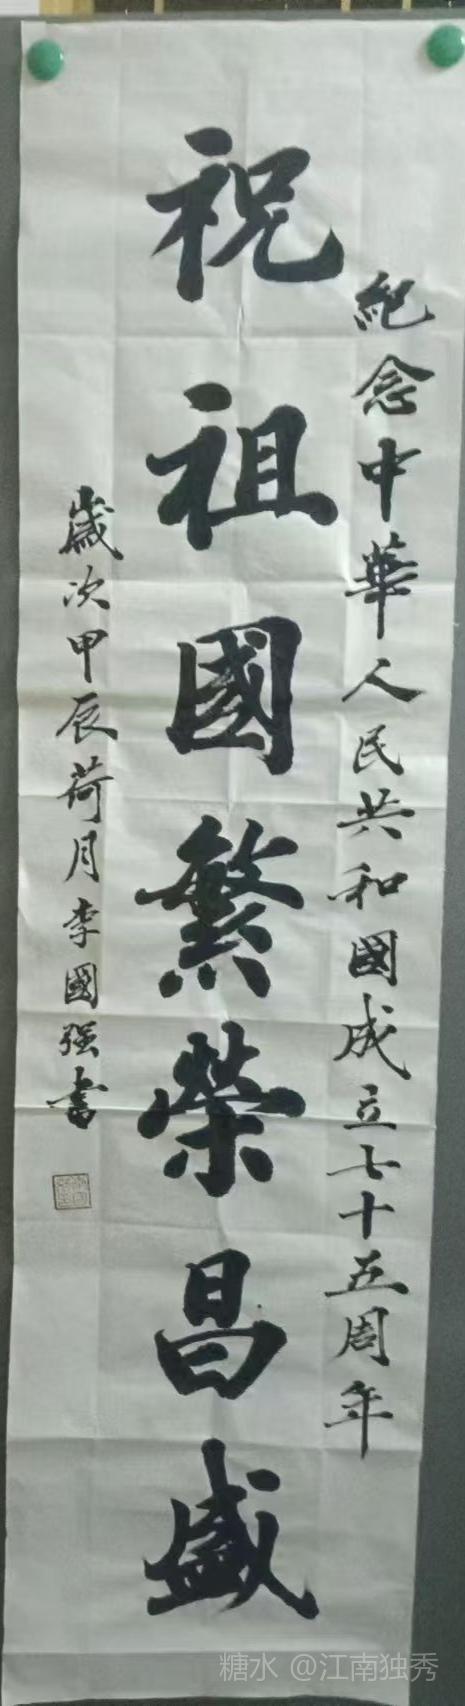 紀念中華人民共和國成立七十五周年
祝祖國繁榮昌盛
歲次甲辰荷月李國强書
糖水 @江南独秀